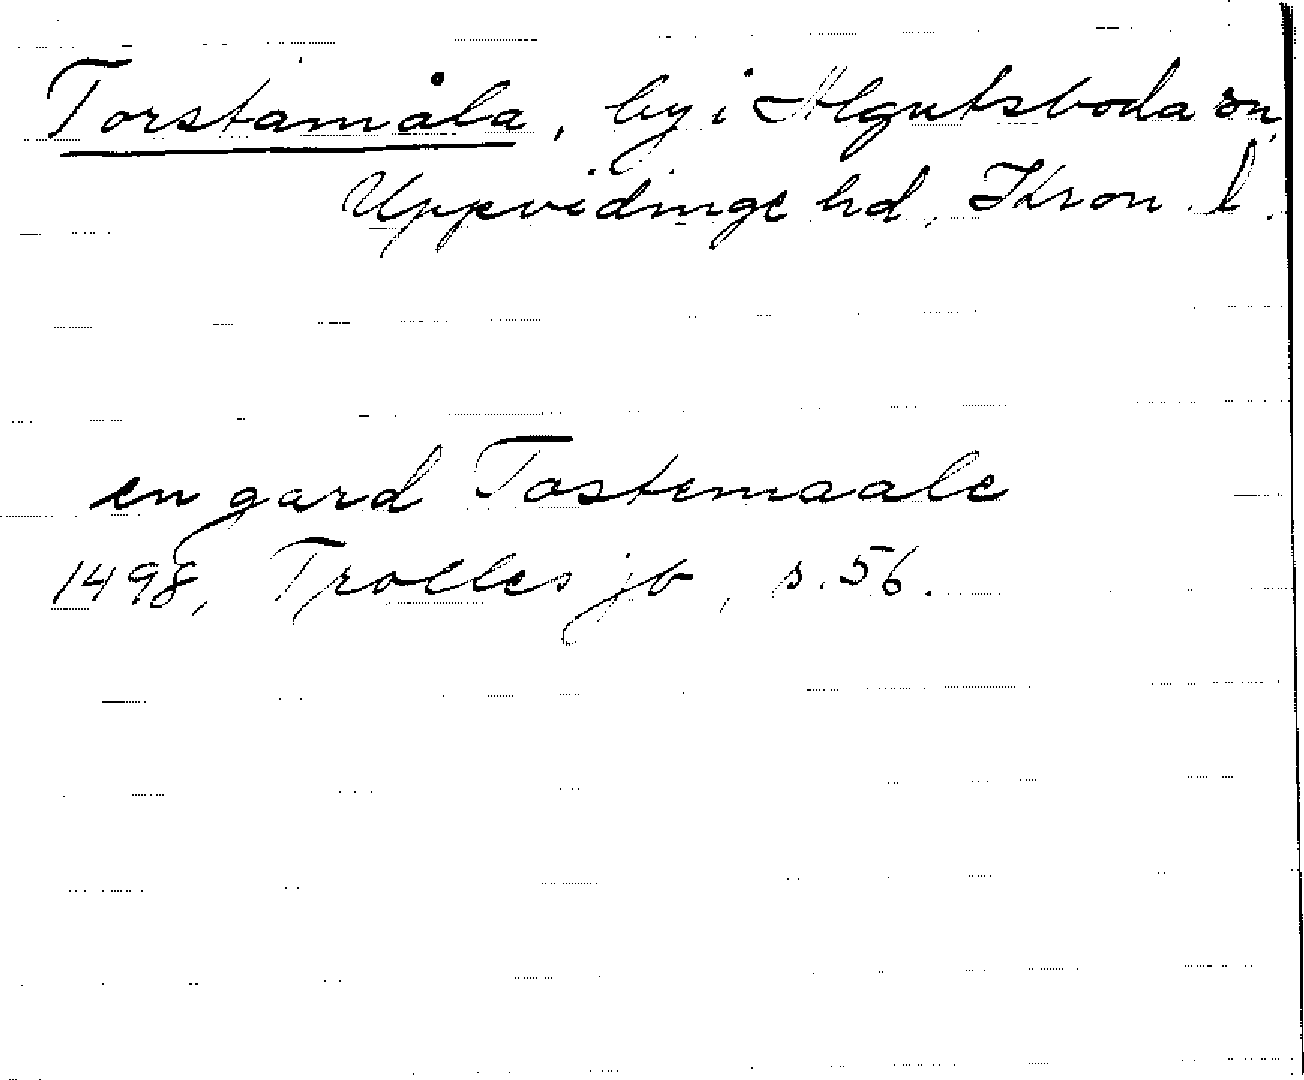 Torstamåla, by i Algutsboda sn,
Uppvidinge hd, Kron. l.
en gard Tostemaale
1498, Trolles jb, s. 56.